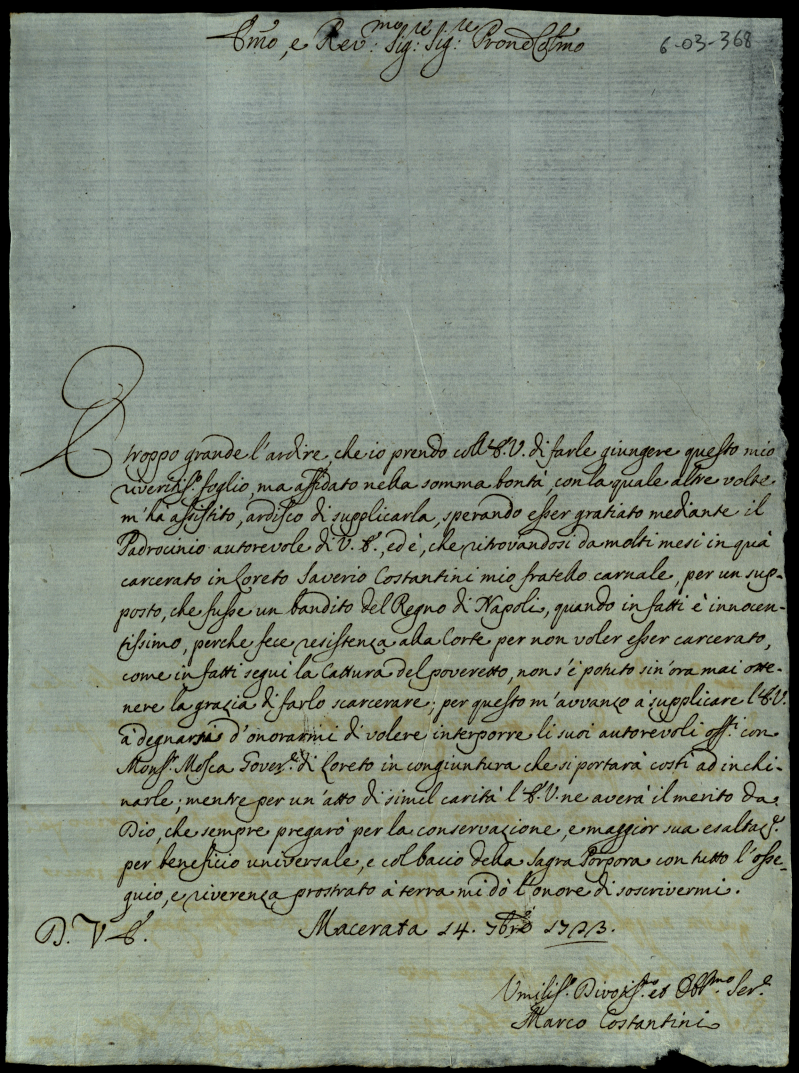 Emo, e Revmo: Sigre: Sigre: Prone Colmo
6-03-368
E troppo grande l'ardire, che io prendo coll'E.V. di farle giungere questo mio
riveridiso. foglio, ma affidato nella somma bontà, con la quale altre volte
m'hà assistito, ardisco di supplicarla, sperando esser gratiato mediante il
Padrocinio autorevole di V. E., ed è, che ritrovandosi da molti mesi in quà
carcerato in Loreto Saverio Costantini mio fratello carnale, per un sup-
posto, che fusse un bandito del Regno di Napoli, quando in fatti è innocen-
tissimo, perche fece resistenza alla Corte per non voler esser carcerato,
come in fatti seguì la Cattura del poveretto, non s'è potuto sin'ora mai otte-
nere la grazia di farlo scarcerare; per questo m'avvanzo à supplicare l'E.V.
à degnarsi d'onorarmi di volere interporre li suoi autorevoli offi. con
Monsr. Mosca Govere. di Loreto in congiuntura che si portarà costì ad inchi-
narle; mentre per un'atto di simil carità l'E.V. ne averà il merito da
Dio, che sempre pregarò per la conservazione, e maggior sua esaltaze.
per beneficio universale, e col baccio della Sagra Porpora con tutto l'osse-
quio, e riverenza prostrato à terra mi dò l'onore di soscrivermi.
D. V. E. Macerata 14. 7bre 1723.
Umiliso. Divotiso. et Obbmo Sere.
Marco Costantini